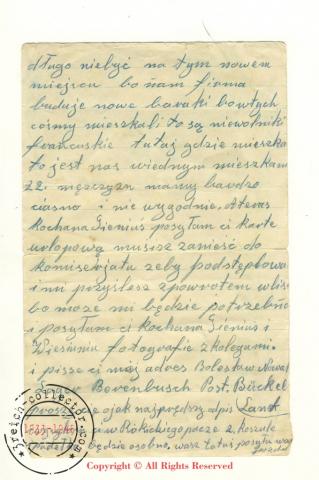 długo niebyć na tym nowem
miejscu bo nam firma
buduje nowe baraki bo wtych
cośmy mieszkali to są niewolniki
francuskie tutaj gdzie mieszka
to jest nas wiednym mieszkani
22. męzczyzn mamy bardzo
ciasno i nie wygodnie. Ateras
Kochana Gieniuś posyłam ci karte
urlopową musisz zanieść do
komiserjatu zeby podstęplowa
i mi przyslesz zpowrotem wliś
bo moze mi będzie potrzebna
i posyłam ci Kochana Gieniuś i
Wiesiunia fotografie z kolegami.
i pisze ci mój adres Bolesław Nowa
Bevenbusch Post. Bückel
prosze cie ojak najprędzy odpis Land
w
będzie osobno, was
3reich-collector.com
1933-1945
Copyright © All Rights Reserved